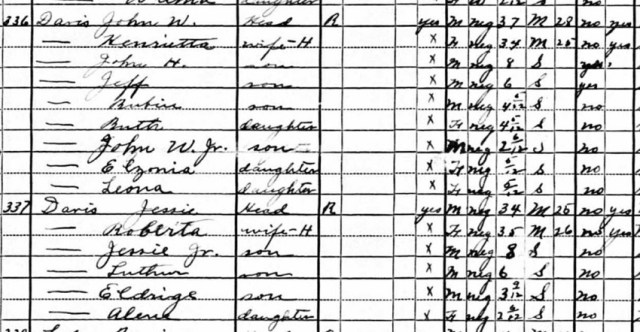 daughter
336 Davis John W. Head R yes M neg 37 M 28 no yes
— Henrietta wife-H X F neg 34 M 25 no yes
— John H. son X M neg 8 S yes
— Jeff son X M neg 6 S yes
— Rubin son X M neg 4 /12 S no
— Ruth daughter X F neg 4 /12 S no
— John W. Jr. son X M neg 2 /12 S no
— Elzonia daughter X F neg /12 S no
— Leona daughter X F neg /12 S no
337 Davis Jessie Head R yes M neg 34 M 25 no yes
— Roberta wife-H X F neg 35 M 26 no yes
— Jessie Jr. son X M neg 8 S no
— Luther son X M neg 6 S no
— Eldrige son X M neg 3 9/12 S no
— Alene daughter X F neg 2 /12 S no